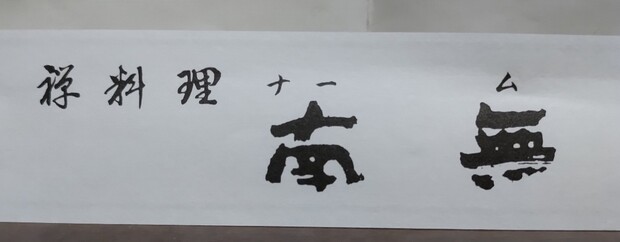 ナー ム
禅料理 南無